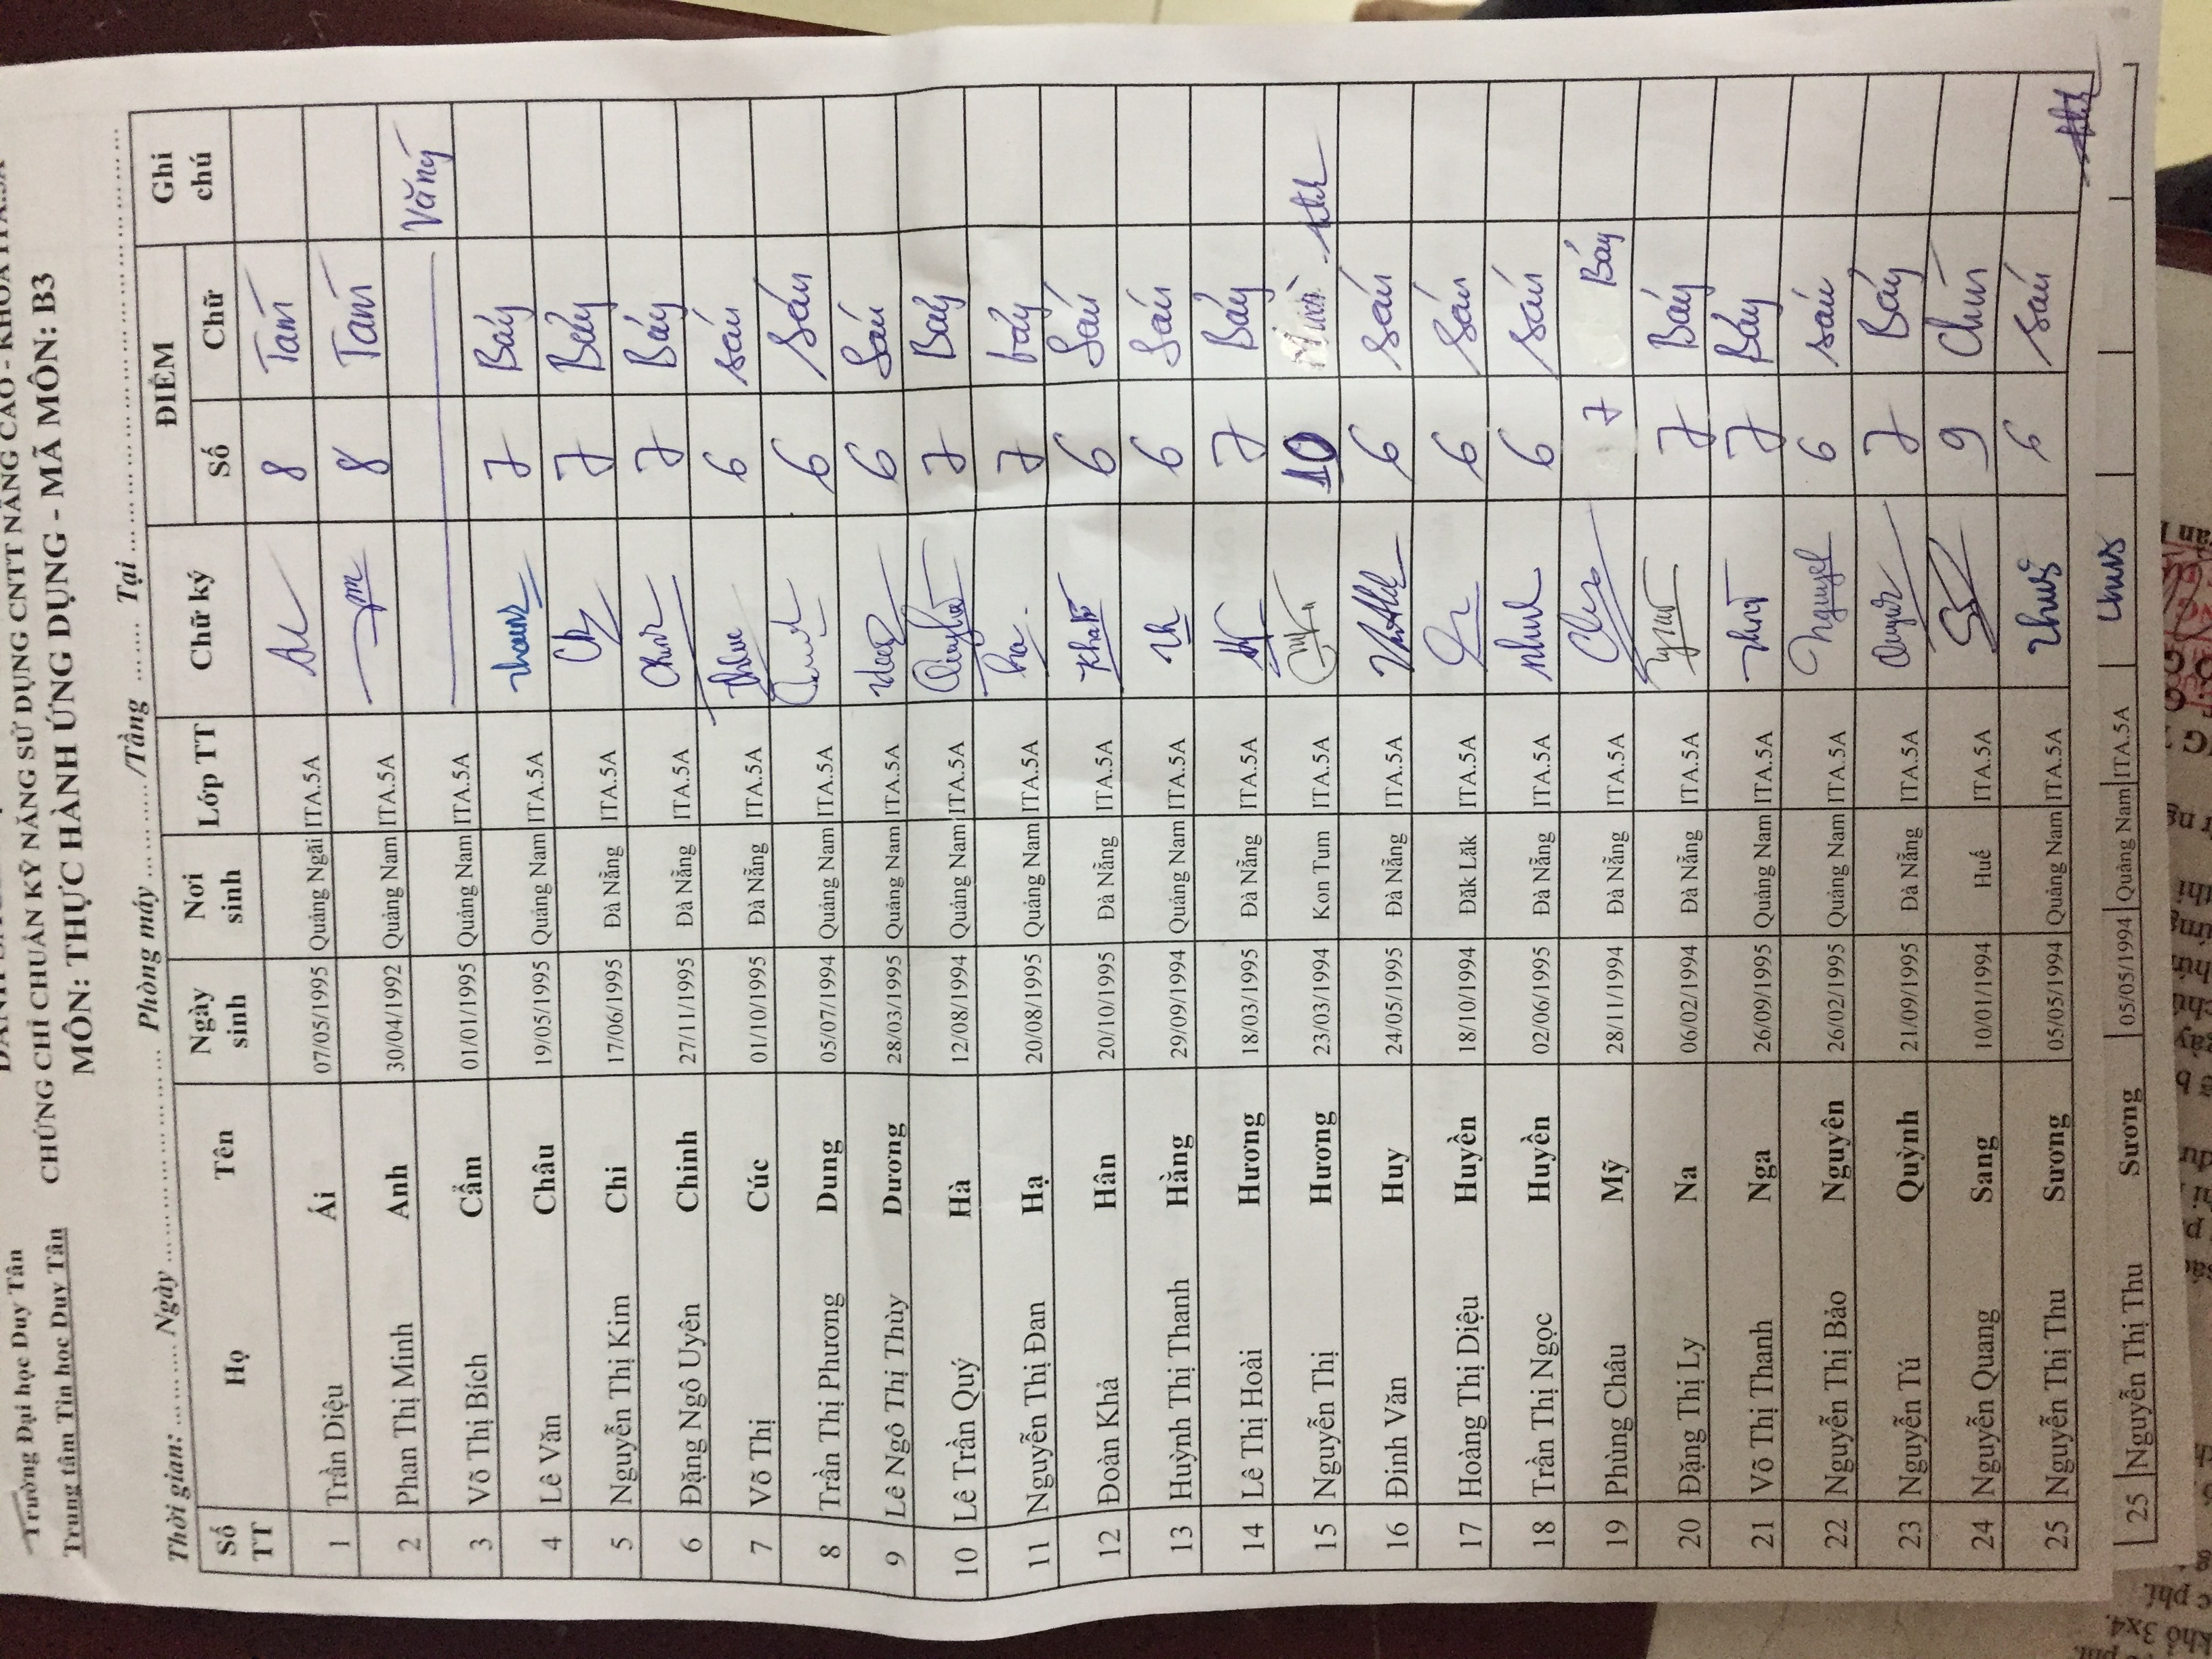 Trường Đại học Duy Tân
Trung tâm Tin học Duy Tân
CHỨNG CHỈ CHUẨN KỸ NĂNG SỬ DỤNG CNTT NÂNG CAO - KHÓA ITA.5A
MÔN: THỰC HÀNH ỨNG DỤNG - MÃ MÔN: B3
Thời gian: Ngày Phòng máy /Tầng Tại
Số TT Họ Tên Ngày sinh Nơi sinh Lớp TT Chữ ký ĐIỂM Số Chữ Ghi chú
1 Trần Diệu Ái 07/05/1995 Quảng Ngãi ITA.5A 8 Tám
2 Phan Thị Minh Anh 30/04/1992 Quảng Nam ITA.5A 8 Tám
3 Võ Thị Bích Cẩm 01/01/1995 Quảng Nam ITA.5A Vắng
4 Lê Văn Châu 19/05/1995 Quảng Nam ITA.5A 7 Bảy
5 Nguyễn Thị Kim Chi 17/06/1995 Đà Nẵng ITA.5A 7 Bảy
6 Đặng Ngô Uyên Chinh 27/11/1995 Đà Nẵng ITA.5A 7 Bảy
7 Võ Thị Cúc 01/10/1995 Đà Nẵng ITA.5A 6 Sáu
8 Trần Thị Phương Dung 05/07/1994 Quảng Nam ITA.5A 6 Sáu
9 Lê Ngô Thị Thùy Dương 28/03/1995 Quảng Nam ITA.5A 6 Sáu
10 Lê Trần Quý Hà 12/08/1994 Quảng Nam ITA.5A 7 Bảy
11 Nguyễn Thị Đan Hạ 20/08/1995 Quảng Nam ITA.5A 7 bảy
12 Đoàn Khả Hân 20/10/1995 Đà Nẵng ITA.5A 6 Sáu
13 Huỳnh Thị Thanh Hằng 29/09/1994 Quảng Nam ITA.5A 6 Sáu
14 Lê Thị Hoài Hương 18/03/1995 Đà Nẵng ITA.5A 7 Bảy
15 Nguyễn Thị Hương 23/03/1994 Kon Tum ITA.5A 10 Mười
16 Đinh Văn Huy 24/05/1995 Đà Nẵng ITA.5A 6 Sáu
17 Hoàng Thị Diệu Huyền 18/10/1994 Đăk Lăk ITA.5A 6 Sáu
18 Trần Thị Ngọc Huyền 02/06/1995 Đà Nẵng ITA.5A 6 Sáu
19 Phùng Châu Mỹ 28/11/1994 Đà Nẵng ITA.5A 7 Bảy
20 Đặng Thị Ly Na 06/02/1994 Đà Nẵng ITA.5A 7 Bảy
21 Võ Thị Thanh Nga 26/09/1995 Quảng Nam ITA.5A 7 Bảy
22 Nguyễn Thị Bảo Nguyên 26/02/1995 Quảng Nam ITA.5A Nguyel 6 Sáu
23 Nguyễn Tú Quỳnh 21/09/1995 Đà Nẵng ITA.5A 7 Bảy
24 Nguyễn Quang Sang 10/01/1994 Huế ITA.5A 9 Chín
25 Nguyễn Thị Thu Sương 05/05/1994 Quảng Nam ITA.5A 6 Sáu
25 Nguyễn Thị Thu Sương 05/05/1994 Quảng Nam ITA.5A